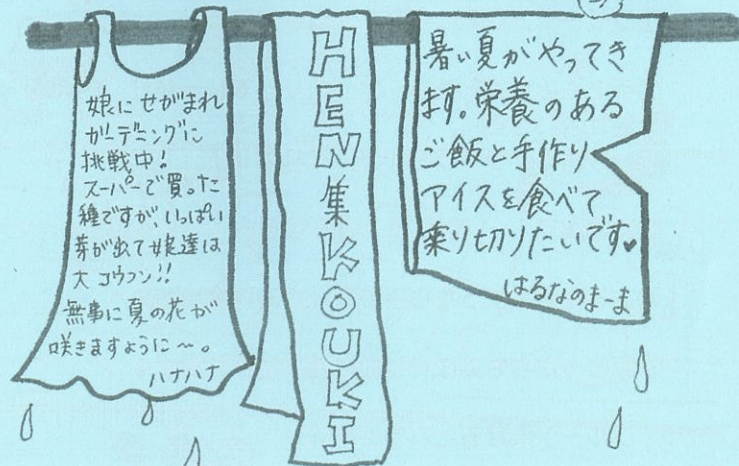 娘にせがまれ
ガーデニングに
挑戦中!
スーパーで買った
種ですが、いっぱい
芽が出て娘達は
大コウフン!!
無事に夏の花が
咲きますように〜。
ハナハナ
HEN集KOUKI
暑い夏がやってき
ます。栄養のある
ご飯と手作り
アイスを食べて
乗り切りたいです♥
はるなのまーま